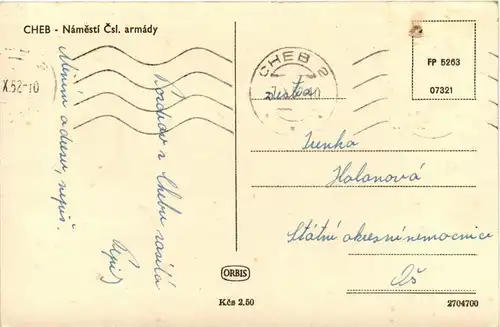 CHEB - Náměstí Čsl. armády
X.52-10
CHEB 2
FP 5263
07321
Pozdrav z
Chebu zasílá
Měním adresu, nepiš.
Lenka
Halanová
Státní okresní nemocnice
Aš
ORBIS
Kčs 2.50
2704700